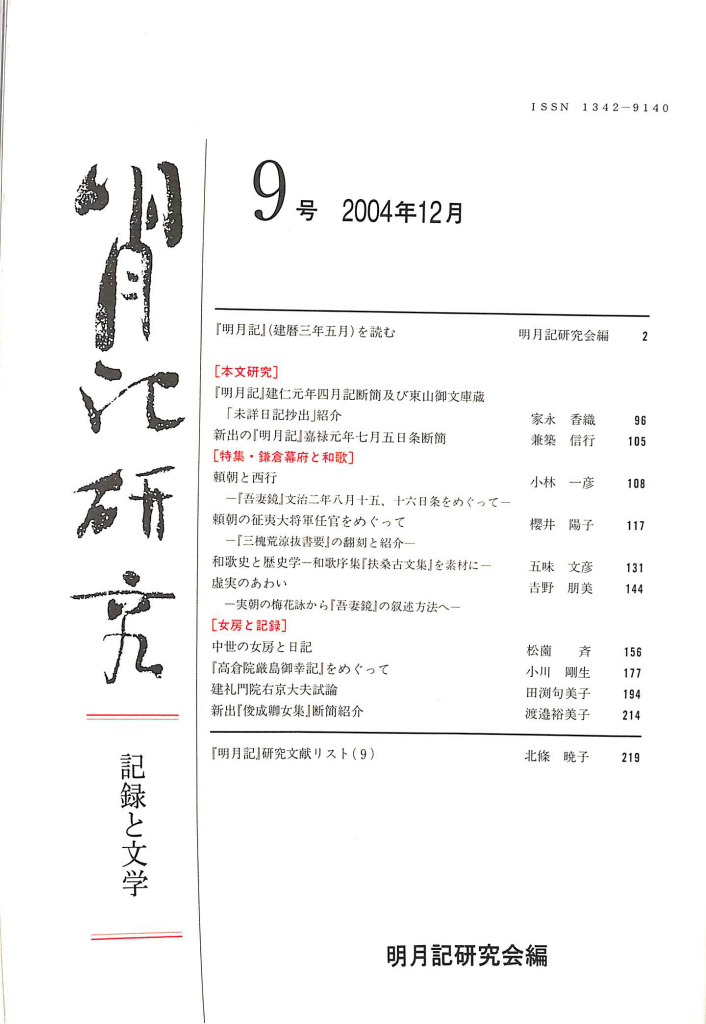 ISSN 1342−9140
明月記研究
記録と文学
9号 2004年12月
『明月記』(建暦三年五月)を読む 明月記研究会編 2
[本文研究]
『明月記』建仁元年四月記断簡及び東山御文庫蔵
「未詳日記抄出」紹介 家永 香織 96
新出の『明月記』嘉禄元年七月五日条断簡 兼築 信行 105
[特集・鎌倉幕府と和歌]
頼朝と西行 小林 一彦 108
−『吾妻鏡』文治二年八月十五、十六日条をめぐって−
頼朝の征夷大将軍任官をめぐって 櫻井 陽子 117
−『三槐荒涼抜書要』の翻刻と紹介−
和歌史と歴史学−和歌序集『扶桑古文集』を素材に− 五味 文彦 131
虚実のあわい 吉野 朋美 144
−実朝の梅花詠から『吾妻鏡』の叙述方法へ−
[女房と記録]
中世の女房と日記 松薗 斉 156
『高倉院厳島御幸記』をめぐって 小川 剛生 177
建礼門院右京大夫試論 田渕句美子 194
新出『俊成卿女集』断簡紹介 渡邉裕美子 214
『明月記』研究文献リスト(9) 北條 暁子 219
明月記研究会編